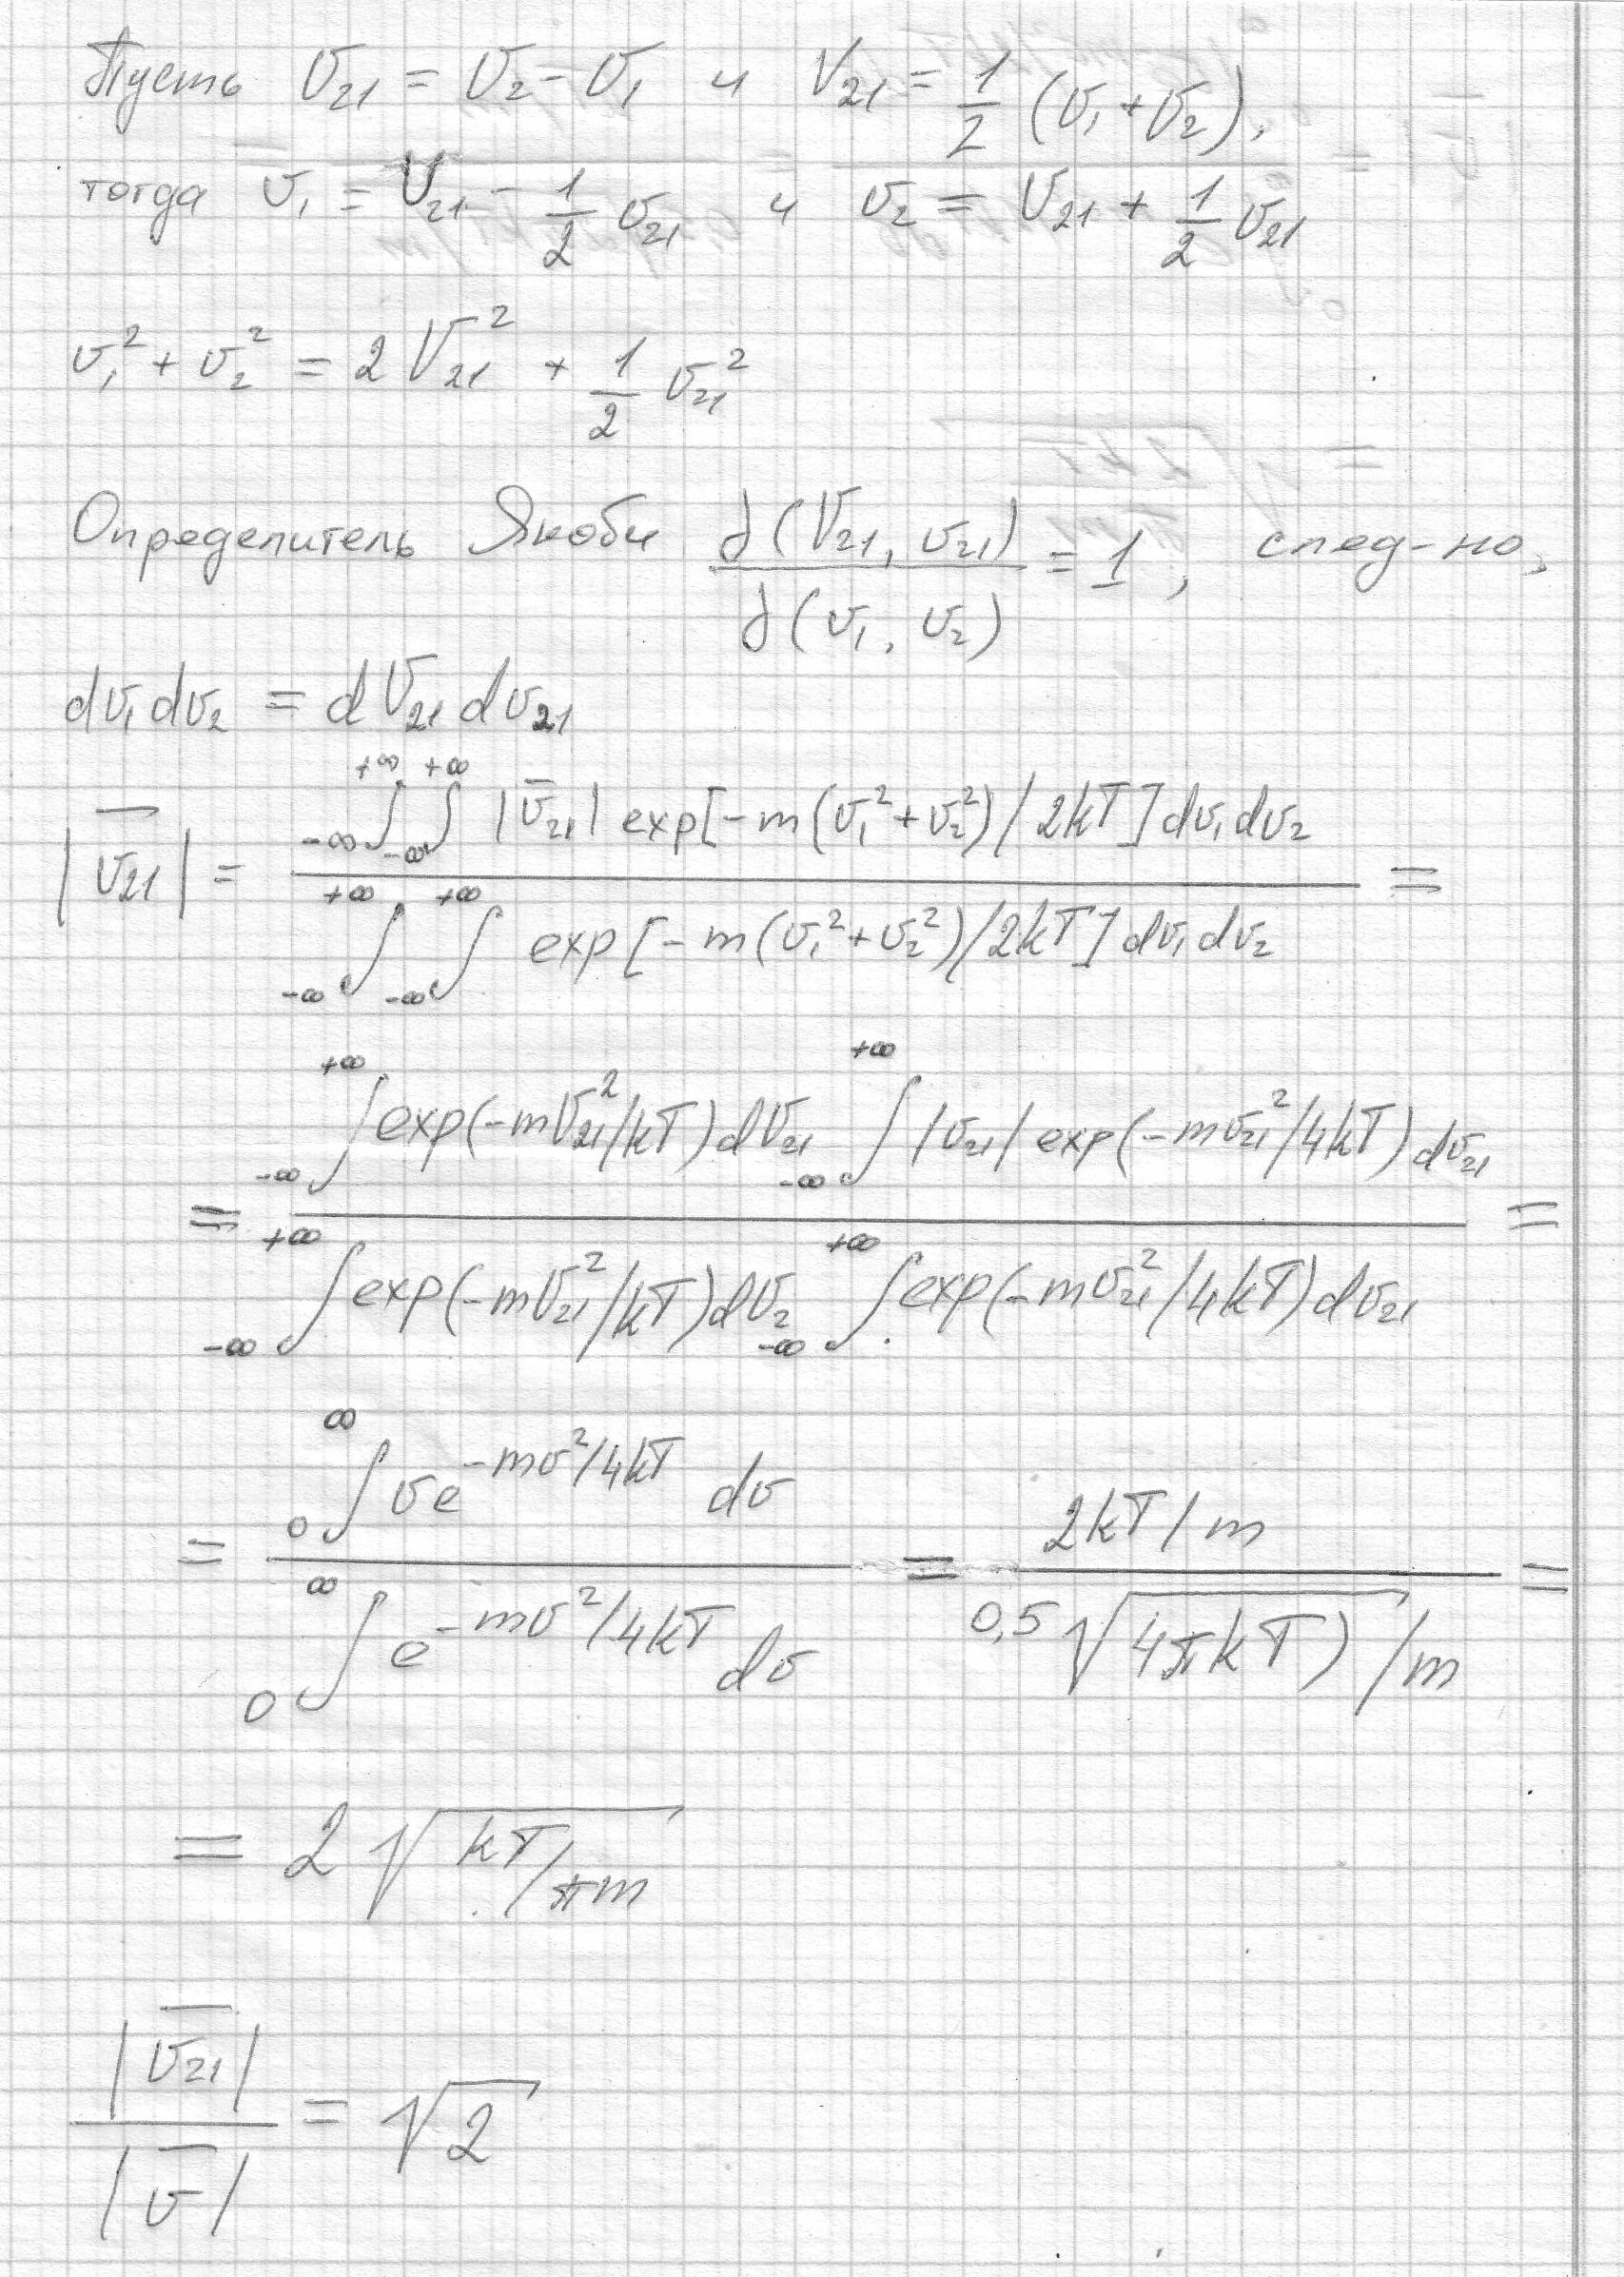 Пусть υ₂₁ = υ₂ − υ₁ и V₂₁ = 1/2 (υ₁ + υ₂),
тогда υ₁ = V₂₁ − 1/2 υ₂₁ и υ₂ = V₂₁ + 1/2 υ₂₁
υ₁² + υ₂² = 2 V₂₁² + 1/2 υ₂₁²
Определитель Якоби ∂(V₂₁, υ₂₁)/∂(υ₁, υ₂) = 1, след-но,
dυ₁dυ₂ = dV₂₁dυ₂₁
|υ̅₂₁| = ∫₋∞^+∞ ∫₋∞^+∞ |υ̅₂₁| exp[−m(υ₁²+υ₂²)/2kT]dυ₁dυ₂ / ∫₋∞^+∞ ∫₋∞^+∞ exp[−m(υ₁²+υ₂²)/2kT]dυ₁dυ₂ =
= ∫₋∞^+∞ exp(−mV₂₁²/kT)dV₂₁ ∫₋∞^+∞ |υ₂₁| exp(−mυ₂₁²/4kT)dυ₂₁ / ∫₋∞^+∞ exp(−mV₂₁²/kT)dV₂ ∫₋∞^+∞ exp(−mυ₂₁²/4kT)dυ₂₁ =
= ∫₀^∞ υe^(−mυ²/4kT) dυ / ∫₀^∞ e^(−mυ²/4kT) dυ = 2kT/m / 0,5√4πkT)/m =
= 2√kT/πm
|υ̅₂₁|/|υ̅| = √2